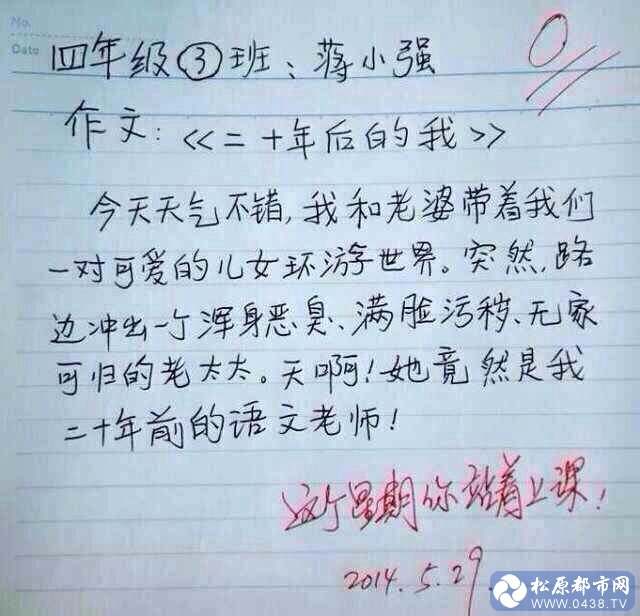 No.
Date
四年级③班:蒋小强
0
作文:《二十年后的我》
今天天气不错,我和老婆带着我们
一对可爱的儿女环游世界。突然,路
边冲出一个浑身恶臭、满脸污秽、无家
可归的老太太。天啊!她竟然是我
二十年前的语文老师!
这个星期你站着上课!
2014.5.29
松原都市网
www.0438.TV